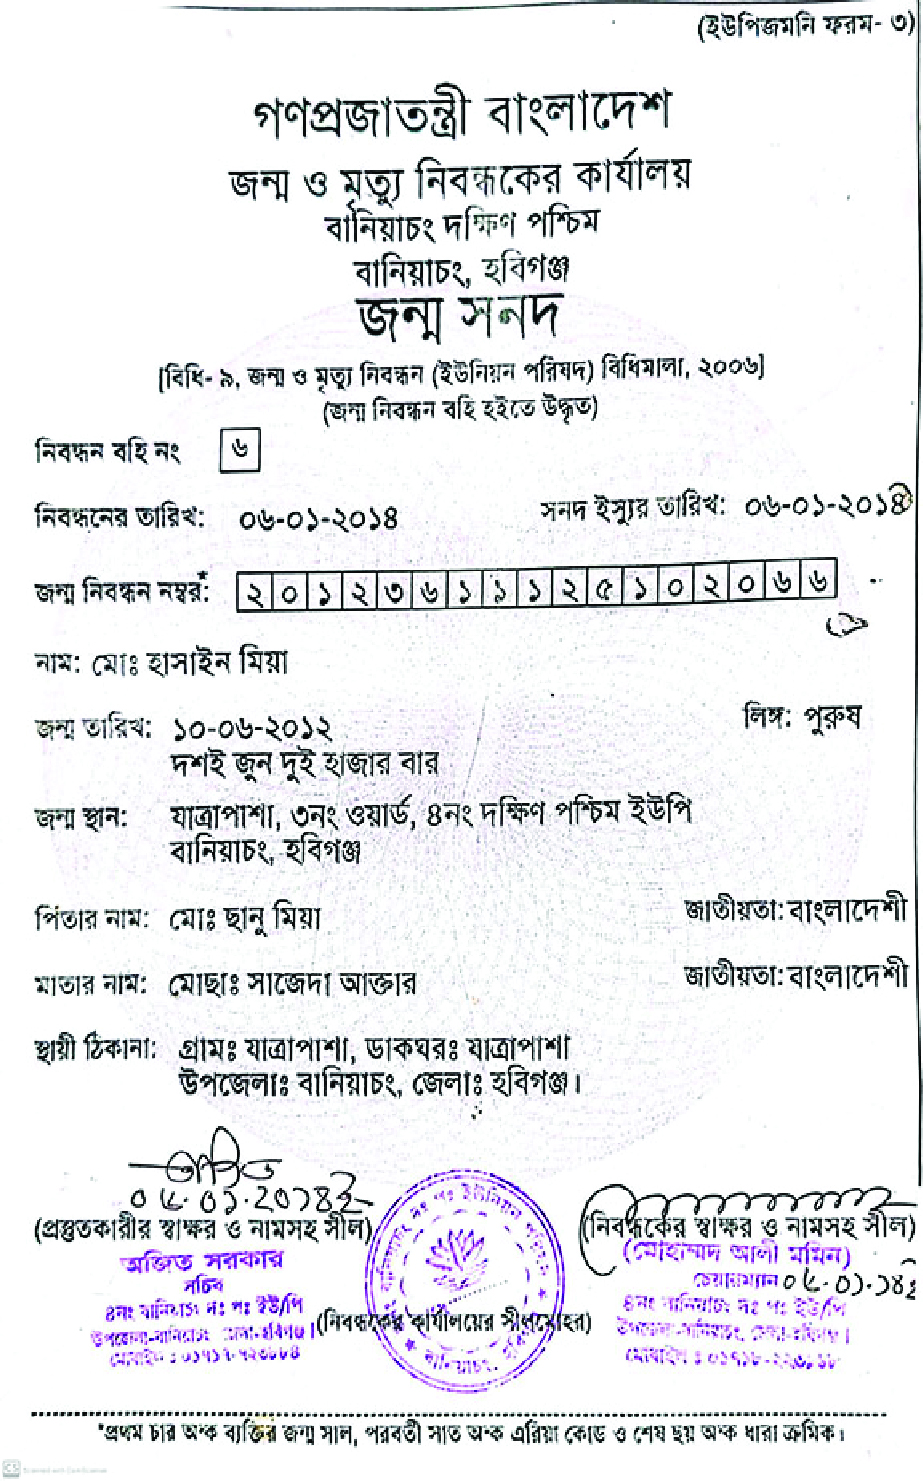 (ইউপিজমনি ফরম- ৩)
গণপ্রজাতন্ত্রী বাংলাদেশ
জন্ম ও মৃত্যু নিবন্ধকের কার্যালয়
বানিয়াচং দক্ষিণ পশ্চিম
বানিয়াচং, হবিগঞ্জ
জন্ম সনদ
[বিধি- ৯, জন্ম ও মৃত্যু নিবন্ধন (ইউনিয়ন পরিষদ) বিধিমালা, ২০০৬]
(জন্ম নিবন্ধন বহি হইতে উদ্ধৃত)
নিবন্ধন বহি নং ৬
নিবন্ধনের তারিখ: ০৬-০১-২০১৪ সনদ ইস্যুর তারিখ: ০৬-০১-২০১৪
জন্ম নিবন্ধন নম্বর*: ২০১২৩৬১১১২৫১০২০৬৬
নাম: মোঃ হাসাইন মিয়া
জন্ম তারিখ: ১০-০৬-২০১২ লিঙ্গ: পুরুষ
দশই জুন দুই হাজার বার
জন্ম স্থান: যাত্রাপাশা, ৩নং ওয়ার্ড, ৪নং দক্ষিণ পশ্চিম ইউপি
বানিয়াচং, হবিগঞ্জ
পিতার নাম: মোঃ ছানু মিয়া জাতীয়তা: বাংলাদেশী
মাতার নাম: মোছাঃ সাজেদা আক্তার জাতীয়তা: বাংলাদেশী
স্থায়ী ঠিকানা: গ্রামঃ যাত্রাপাশা, ডাকঘরঃ যাত্রাপাশা
উপজেলাঃ বানিয়াচং, জেলাঃ হবিগঞ্জ।
(প্রস্তুতকারীর স্বাক্ষর ও নামসহ সীল) (নিবন্ধকের স্বাক্ষর ও নামসহ সীল)
অজিত সরকার (মোহাম্মদ আলী মমিন)
সচিব চেয়ারম্যান
৪নং বানিয়াচং দঃ পঃ ইউ/পি ৪নং বানিয়াচং দঃ পঃ ইউ/পি
উপজেলা-বানিয়াচং, জেলা-হবিগঞ্জ। উপজেলা-বানিয়াচং, জেলা-হবিগঞ্জ।
(নিবন্ধকের কার্যালয়ের সীলমোহর)
*প্রথম চার অংক ব্যক্তির জন্ম সাল, পরবর্তী সাত অংক এরিয়া কোড ও শেষ ছয় অংক ধারা ক্রমিক।